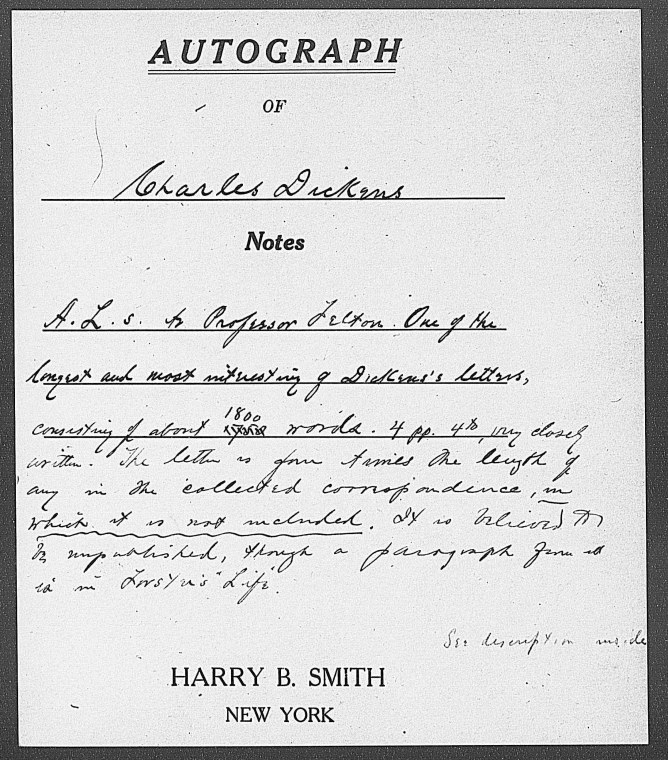 AUTOGRAPH
OF
Charles Dickens
Notes
A. L. s. to Professor Felton. One of the
longest and most interesting of Dickens's letters,
consisting of about 1800 words. 4 pp. 4to, very closely
written. The letter is four times the length of
any in the collected correspondence, in
which it is not included. It is believed to
be unpublished, though a paragraph from it
is in Forster's "Life".
See description inside
HARRY B. SMITH
NEW YORK